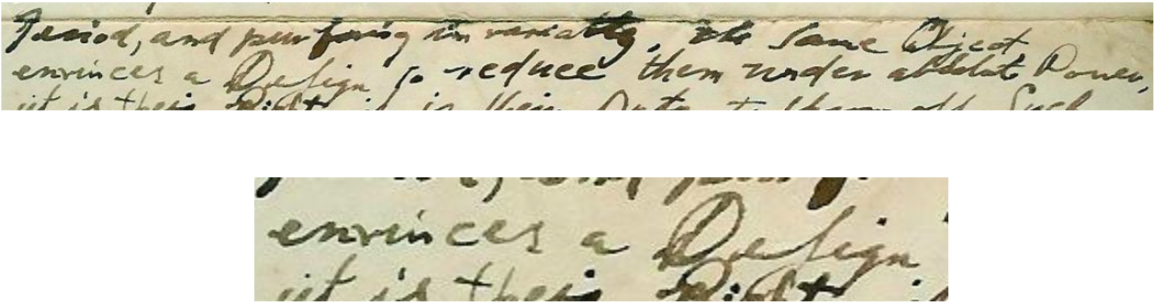 Period, and pursuing invariably, the Same Object,
envinces a Design to reduce them under absolute Power,
it is their Right it is their Duty to throw off Such
envinces a Design
it is their Right